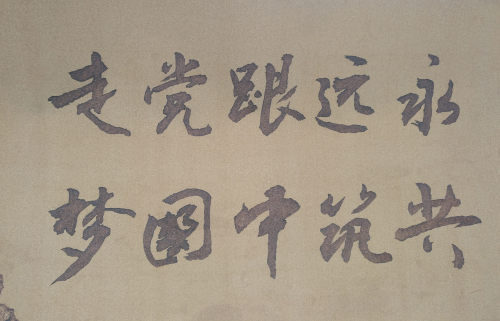 永远跟党走
共筑中国梦